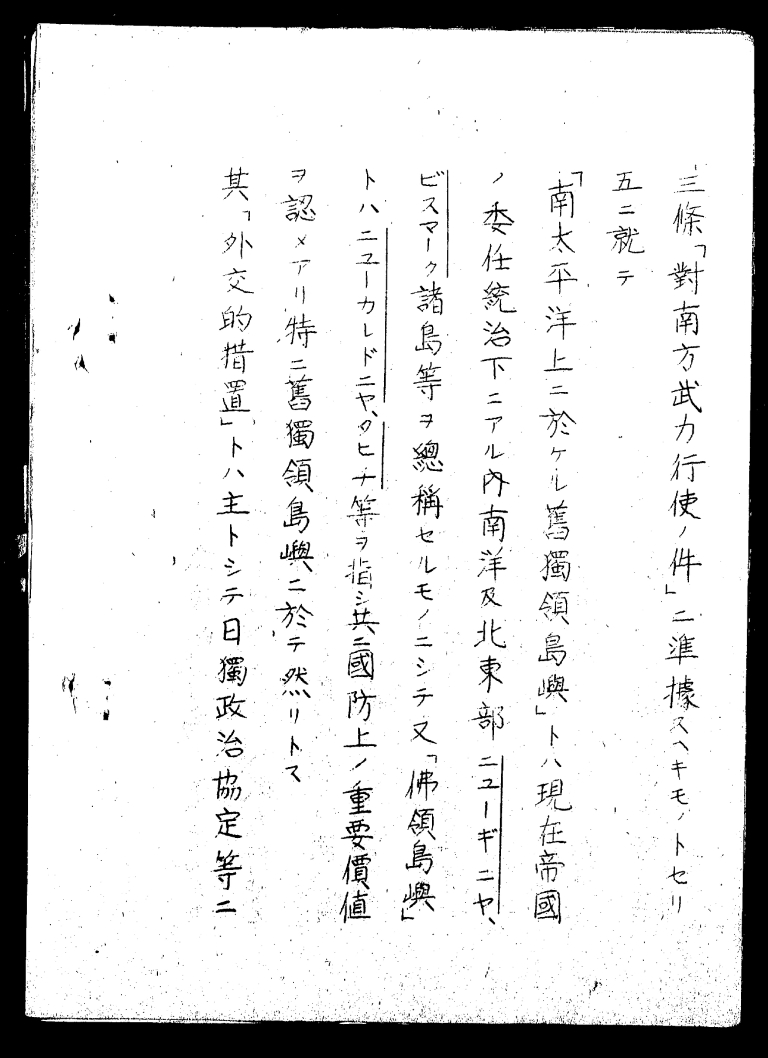 三條「對南方武力行使ノ件」ニ準據スヘキモノトセリ
五ニ就テ
「南太平洋上ニ於ケル舊獨領島嶼」トハ現在帝國
ノ委任統治下ニアル內南洋及北東部ニユーギニヤ、
ビスマーク諸島等ヲ總稱セルモノニシテ又「佛領島嶼」
トハニユーカレドニヤ、タヒチ等ヲ指シ共ニ國防上ノ重要價値
ヲ認メアリ特ニ舊獨領島嶼ニ於テ然リトス
其「外交的措置」トハ主トシテ日獨政治協定等ニ